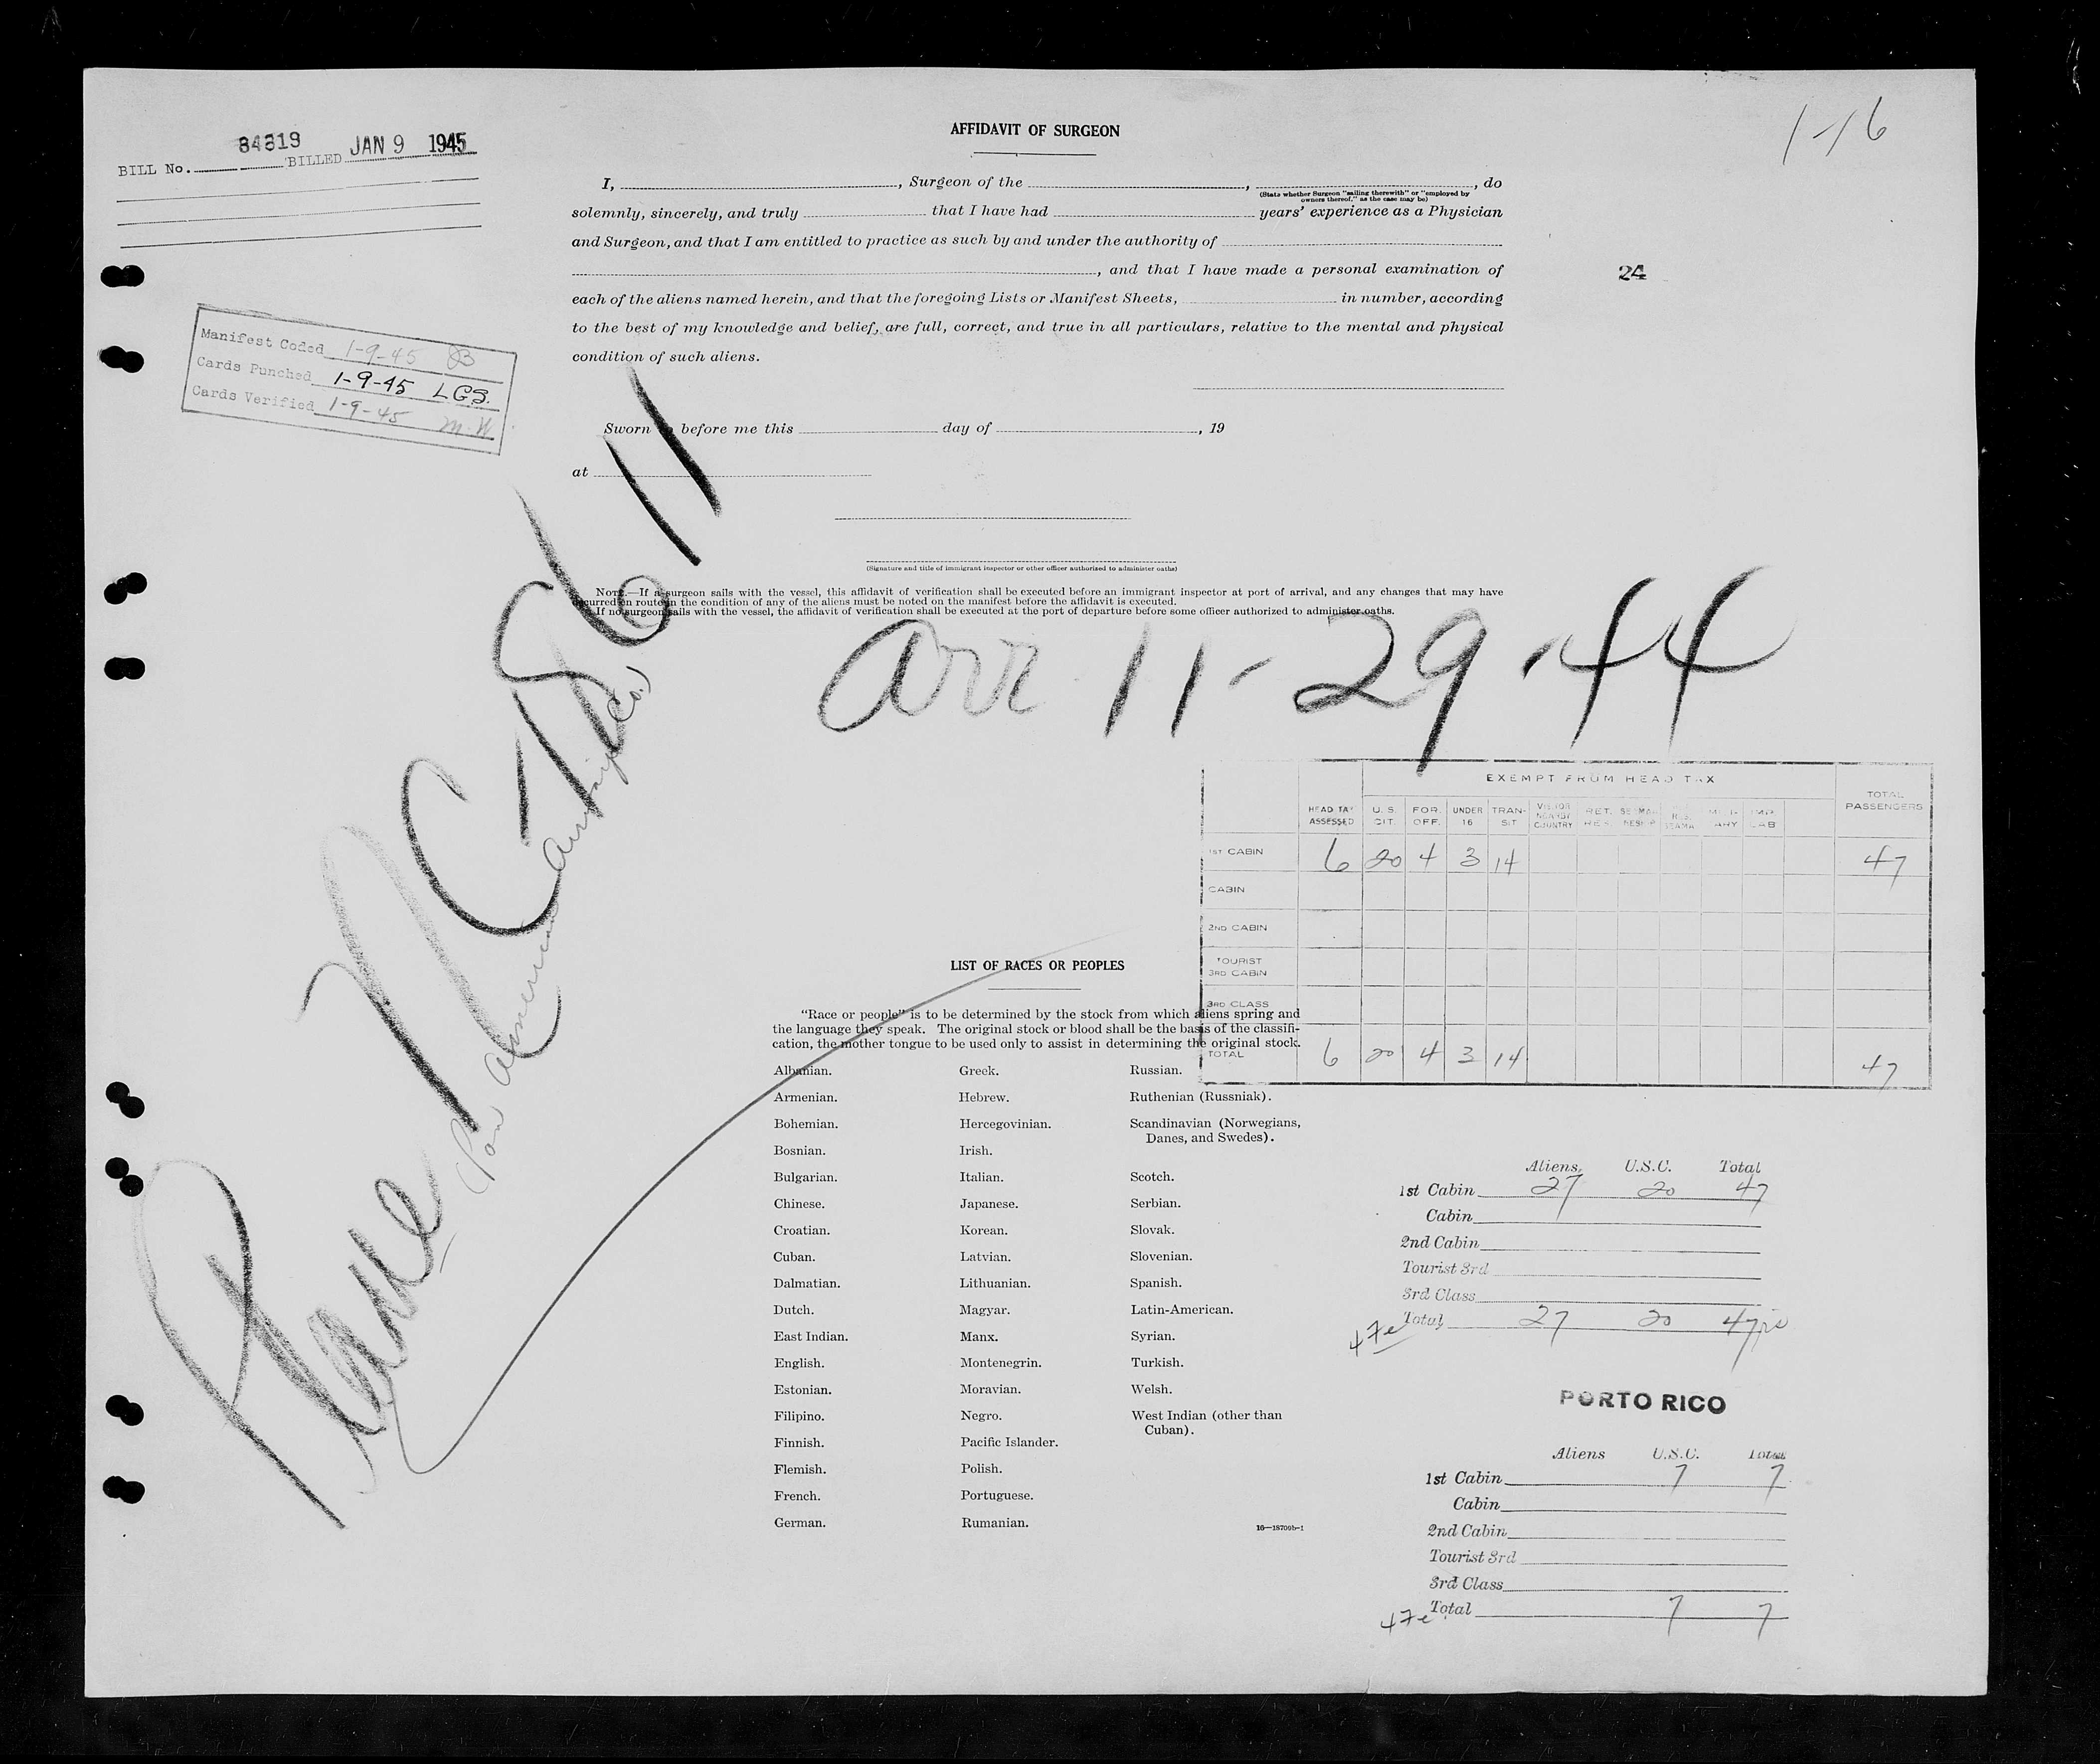 84319 JAN 9 1945
BILL No. BILLED
1-16
AFFIDAVIT OF SURGEON
I, , Surgeon of the , , do
(State whether Surgeon "sailing therewith" or "employed by
owners thereof," as the case may be)
solemnly, sincerely, and truly that I have had years' experience as a Physician
and Surgeon, and that I am entitled to practice as such by and under the authority of
, and that I have made a personal examination of
24
each of the aliens named herein, and that the foregoing Lists or Manifest Sheets, in number, according
to the best of my knowledge and belief, are full, correct, and true in all particulars, relative to the mental and physical
condition of such aliens.
Manifest Coded 1-9-45
Cards Punched 1-9-45 LGS.
Cards Verified 1-9-45 M.W
Sworn before me this day of , 19
at
(Signature and title of immigrant inspector or other officer authorized to administer oaths)
NOTE.—If a surgeon sails with the vessel, this affidavit of verification shall be executed before an immigrant inspector at port of arrival, and any changes that may have
occurred en route in the condition of any of the aliens must be noted on the manifest before the affidavit is executed.
If no surgeon sails with the vessel, the affidavit of verification shall be executed at the port of departure before some officer authorized to administer oaths.
Plane NC-18611
(Pan American Airways Co.)
arr 11-29-44
EXEMPT FROM HEAD TAX
HEAD TAX ASSESSED U.S. CIT. FOR. OFF. UNDER 16 TRANSIT VISITOR NEARBY COUNTRY RET. RES. TOTAL PASSENGERS
1ST CABIN 6 20 4 3 14 47
CABIN
2ND CABIN
TOURIST
3RD CABIN
3RD CLASS
TOTAL 6 20 4 3 14 47
LIST OF RACES OR PEOPLES
"Race or people" is to be determined by the stock from which aliens spring and
the language they speak. The original stock or blood shall be the basis of the classifi-
cation, the mother tongue to be used only to assist in determining the original stock.
Albanian.
Armenian.
Bohemian.
Bosnian.
Bulgarian.
Chinese.
Croatian.
Cuban.
Dalmatian.
Dutch.
East Indian.
English.
Estonian.
Filipino.
Finnish.
Flemish.
French.
German.
Greek.
Hebrew.
Hercegovinian.
Irish.
Italian.
Japanese.
Korean.
Latvian.
Lithuanian.
Magyar.
Manx.
Montenegrin.
Moravian.
Negro.
Pacific Islander.
Polish.
Portuguese.
Rumanian.
Russian.
Ruthenian (Russniak).
Scandinavian (Norwegians,
Danes, and Swedes).
Scotch.
Serbian.
Slovak.
Slovenian.
Spanish.
Latin-American.
Syrian.
Turkish.
Welsh.
West Indian (other than
Cuban).
16—18709b-1
Aliens U.S.C. Total
1st Cabin 27 20 47
Cabin
2nd Cabin
Tourist 3rd
3rd Class
Total 27 20 47
PORTO RICO
Aliens U.S.C. Total
1st Cabin 7 7
Cabin
2nd Cabin
Tourist 3rd
3rd Class
Total 7 7